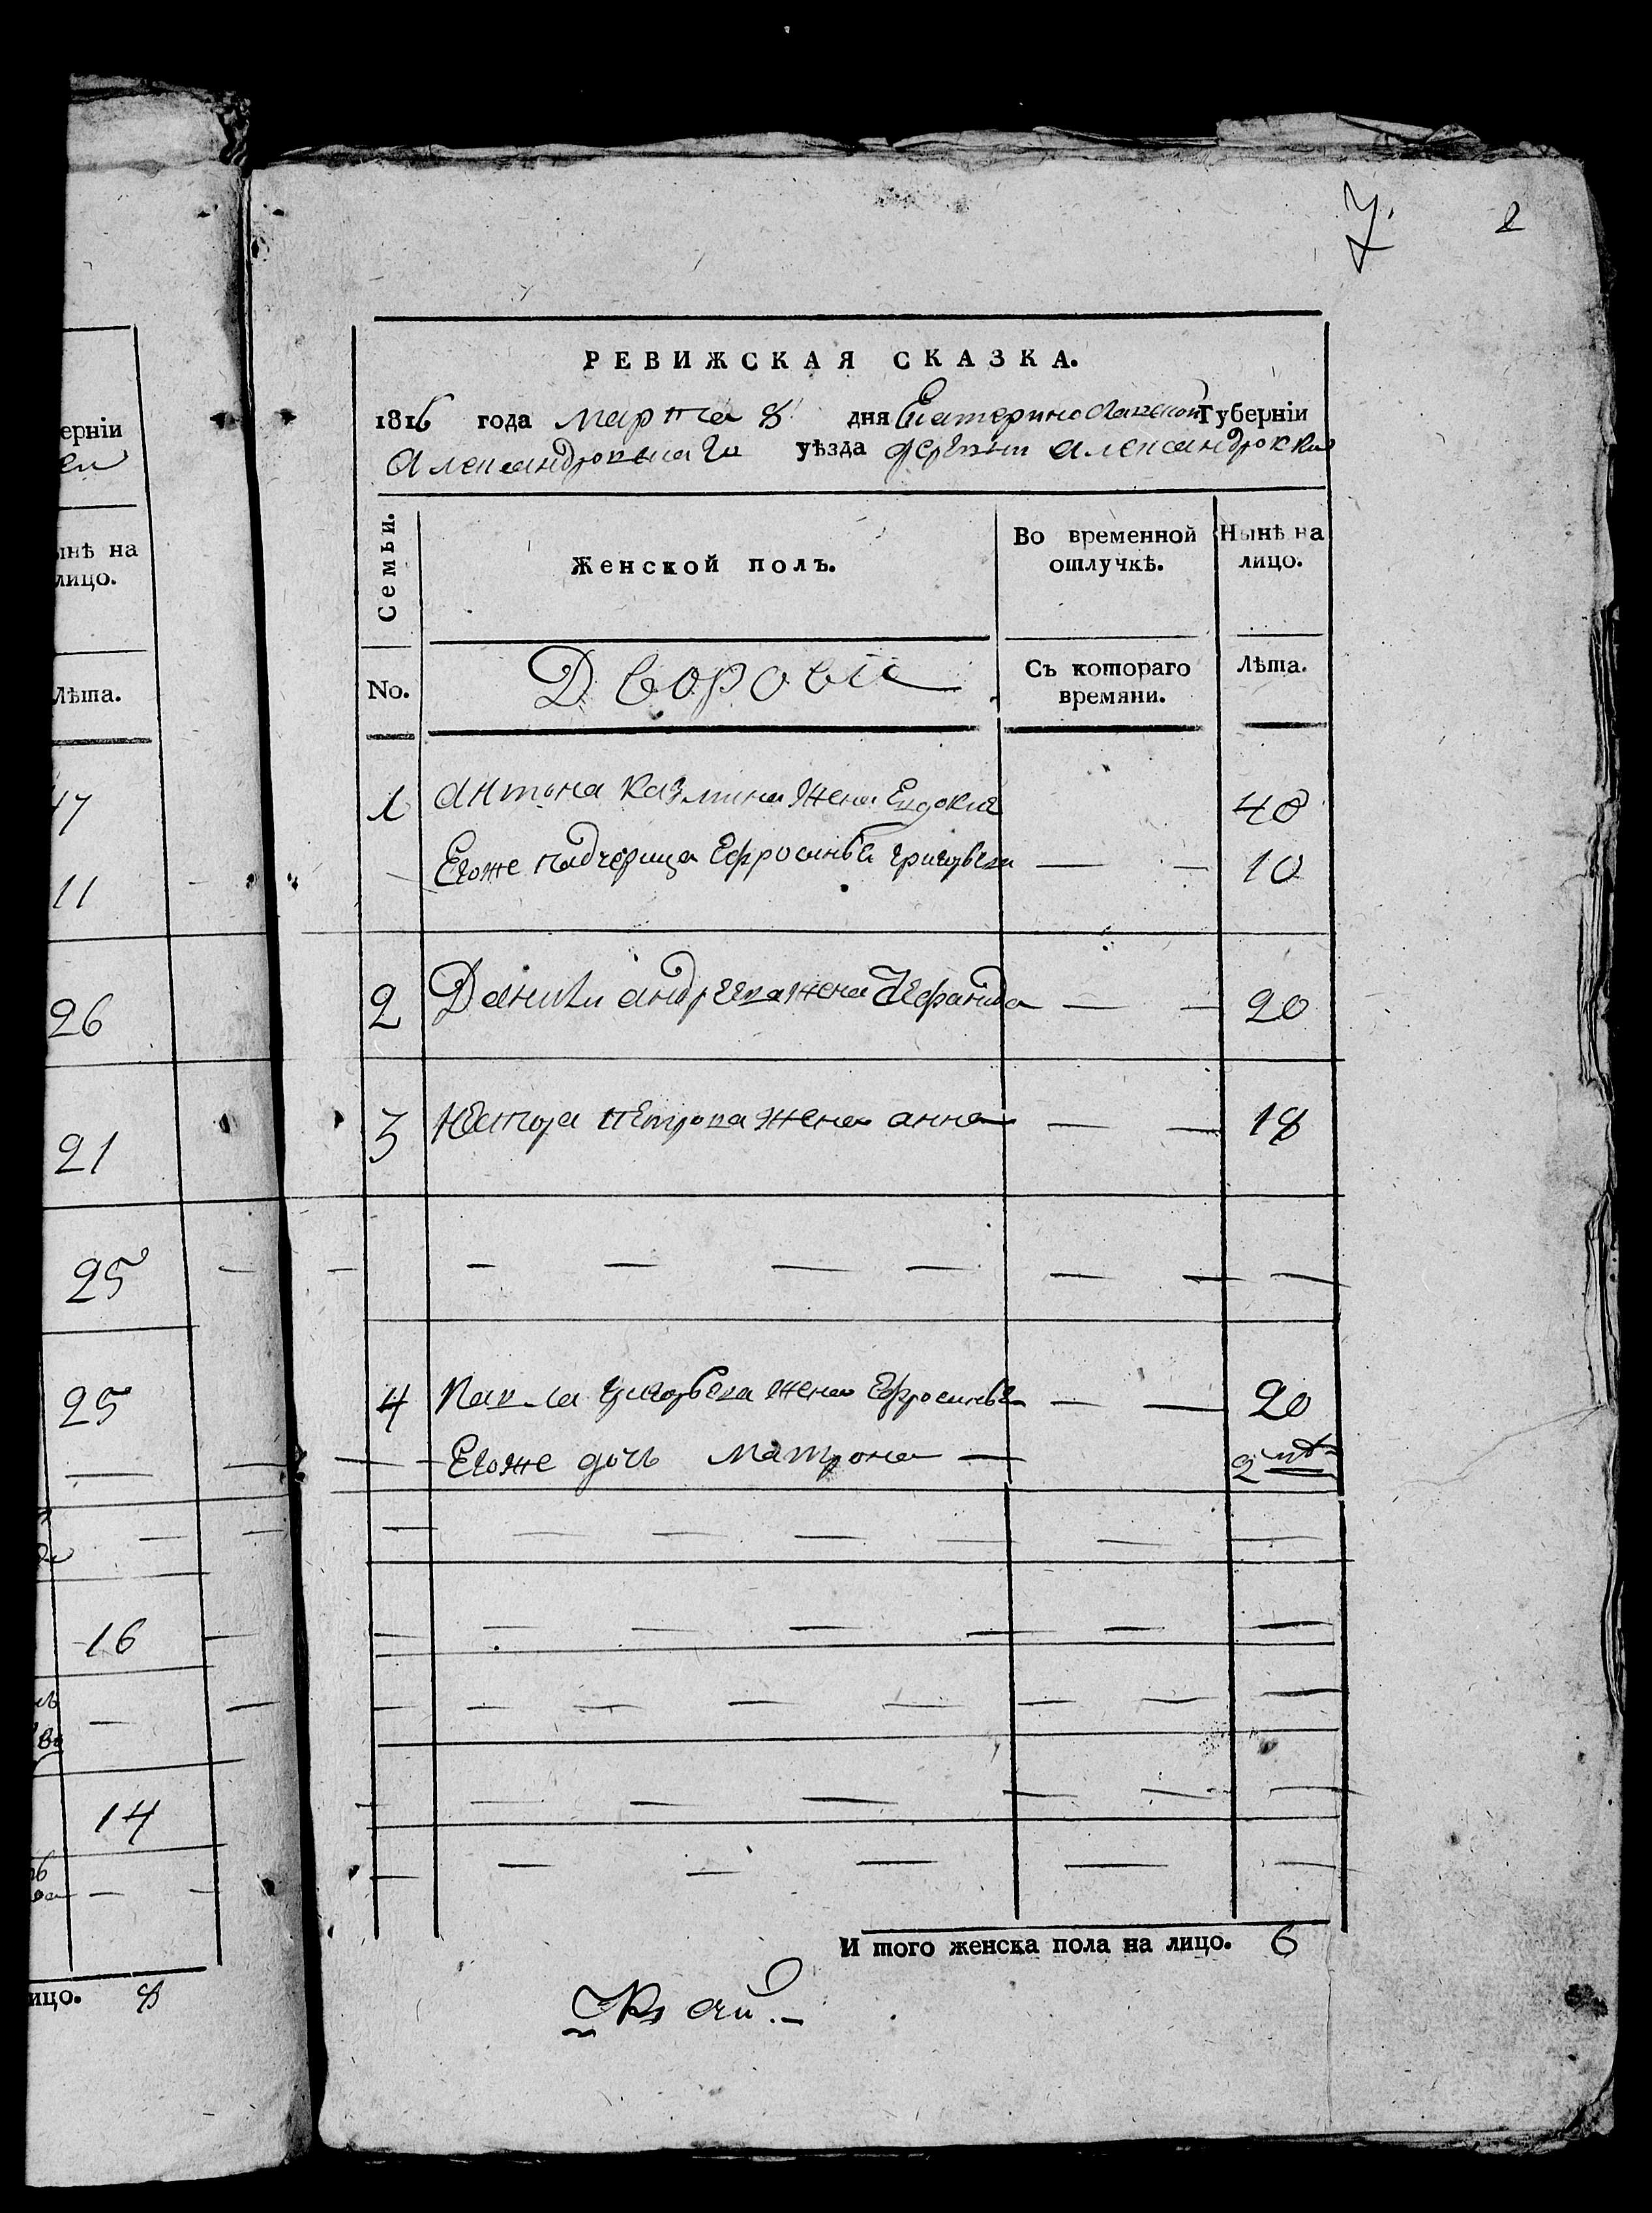 7. 2
РЕВИЖСКАЯ СКАЗКА.
1816 года марта 8 дня Екатеринославской Губерніи
Александровскаго уѣзда деревни Александровки
Семьи.
Женской полъ.
Во временной отлучкѣ.
Ныне на лицо.
No.
Дворовые
Съ котораго времяни.
Лѣта.
1 Антона Казмина жена Евдокия 40
Егоже падчерица Ефросинья григорьева — — 10
2 Данилы андреева жена — — 20
3 Нестора петрова жена анна — — 18
— — — — — — —
4 Павла григорьева жена Ефросинья — — 20
Егоже дочь матрона — 2
И того женска пола на лицо. 6
ерніи
ынѣ на
лицо.
Лѣта.
47
11
26
21
25
25
—
—
16
—
14
—
ицо. 8